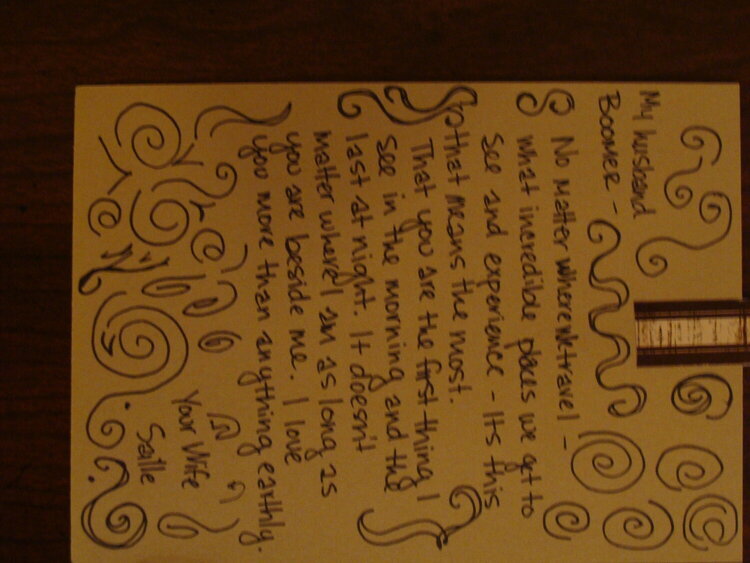 My husband
Boomer -
No matter where we travel -
what incredible places we get to
see and experience - Its this
that means the most.
That you are the first thing I
see in the morning and the
last at night. It doesn't
matter where I am as long as
you are beside me. I love
you more than anything earthly.
Your Wife